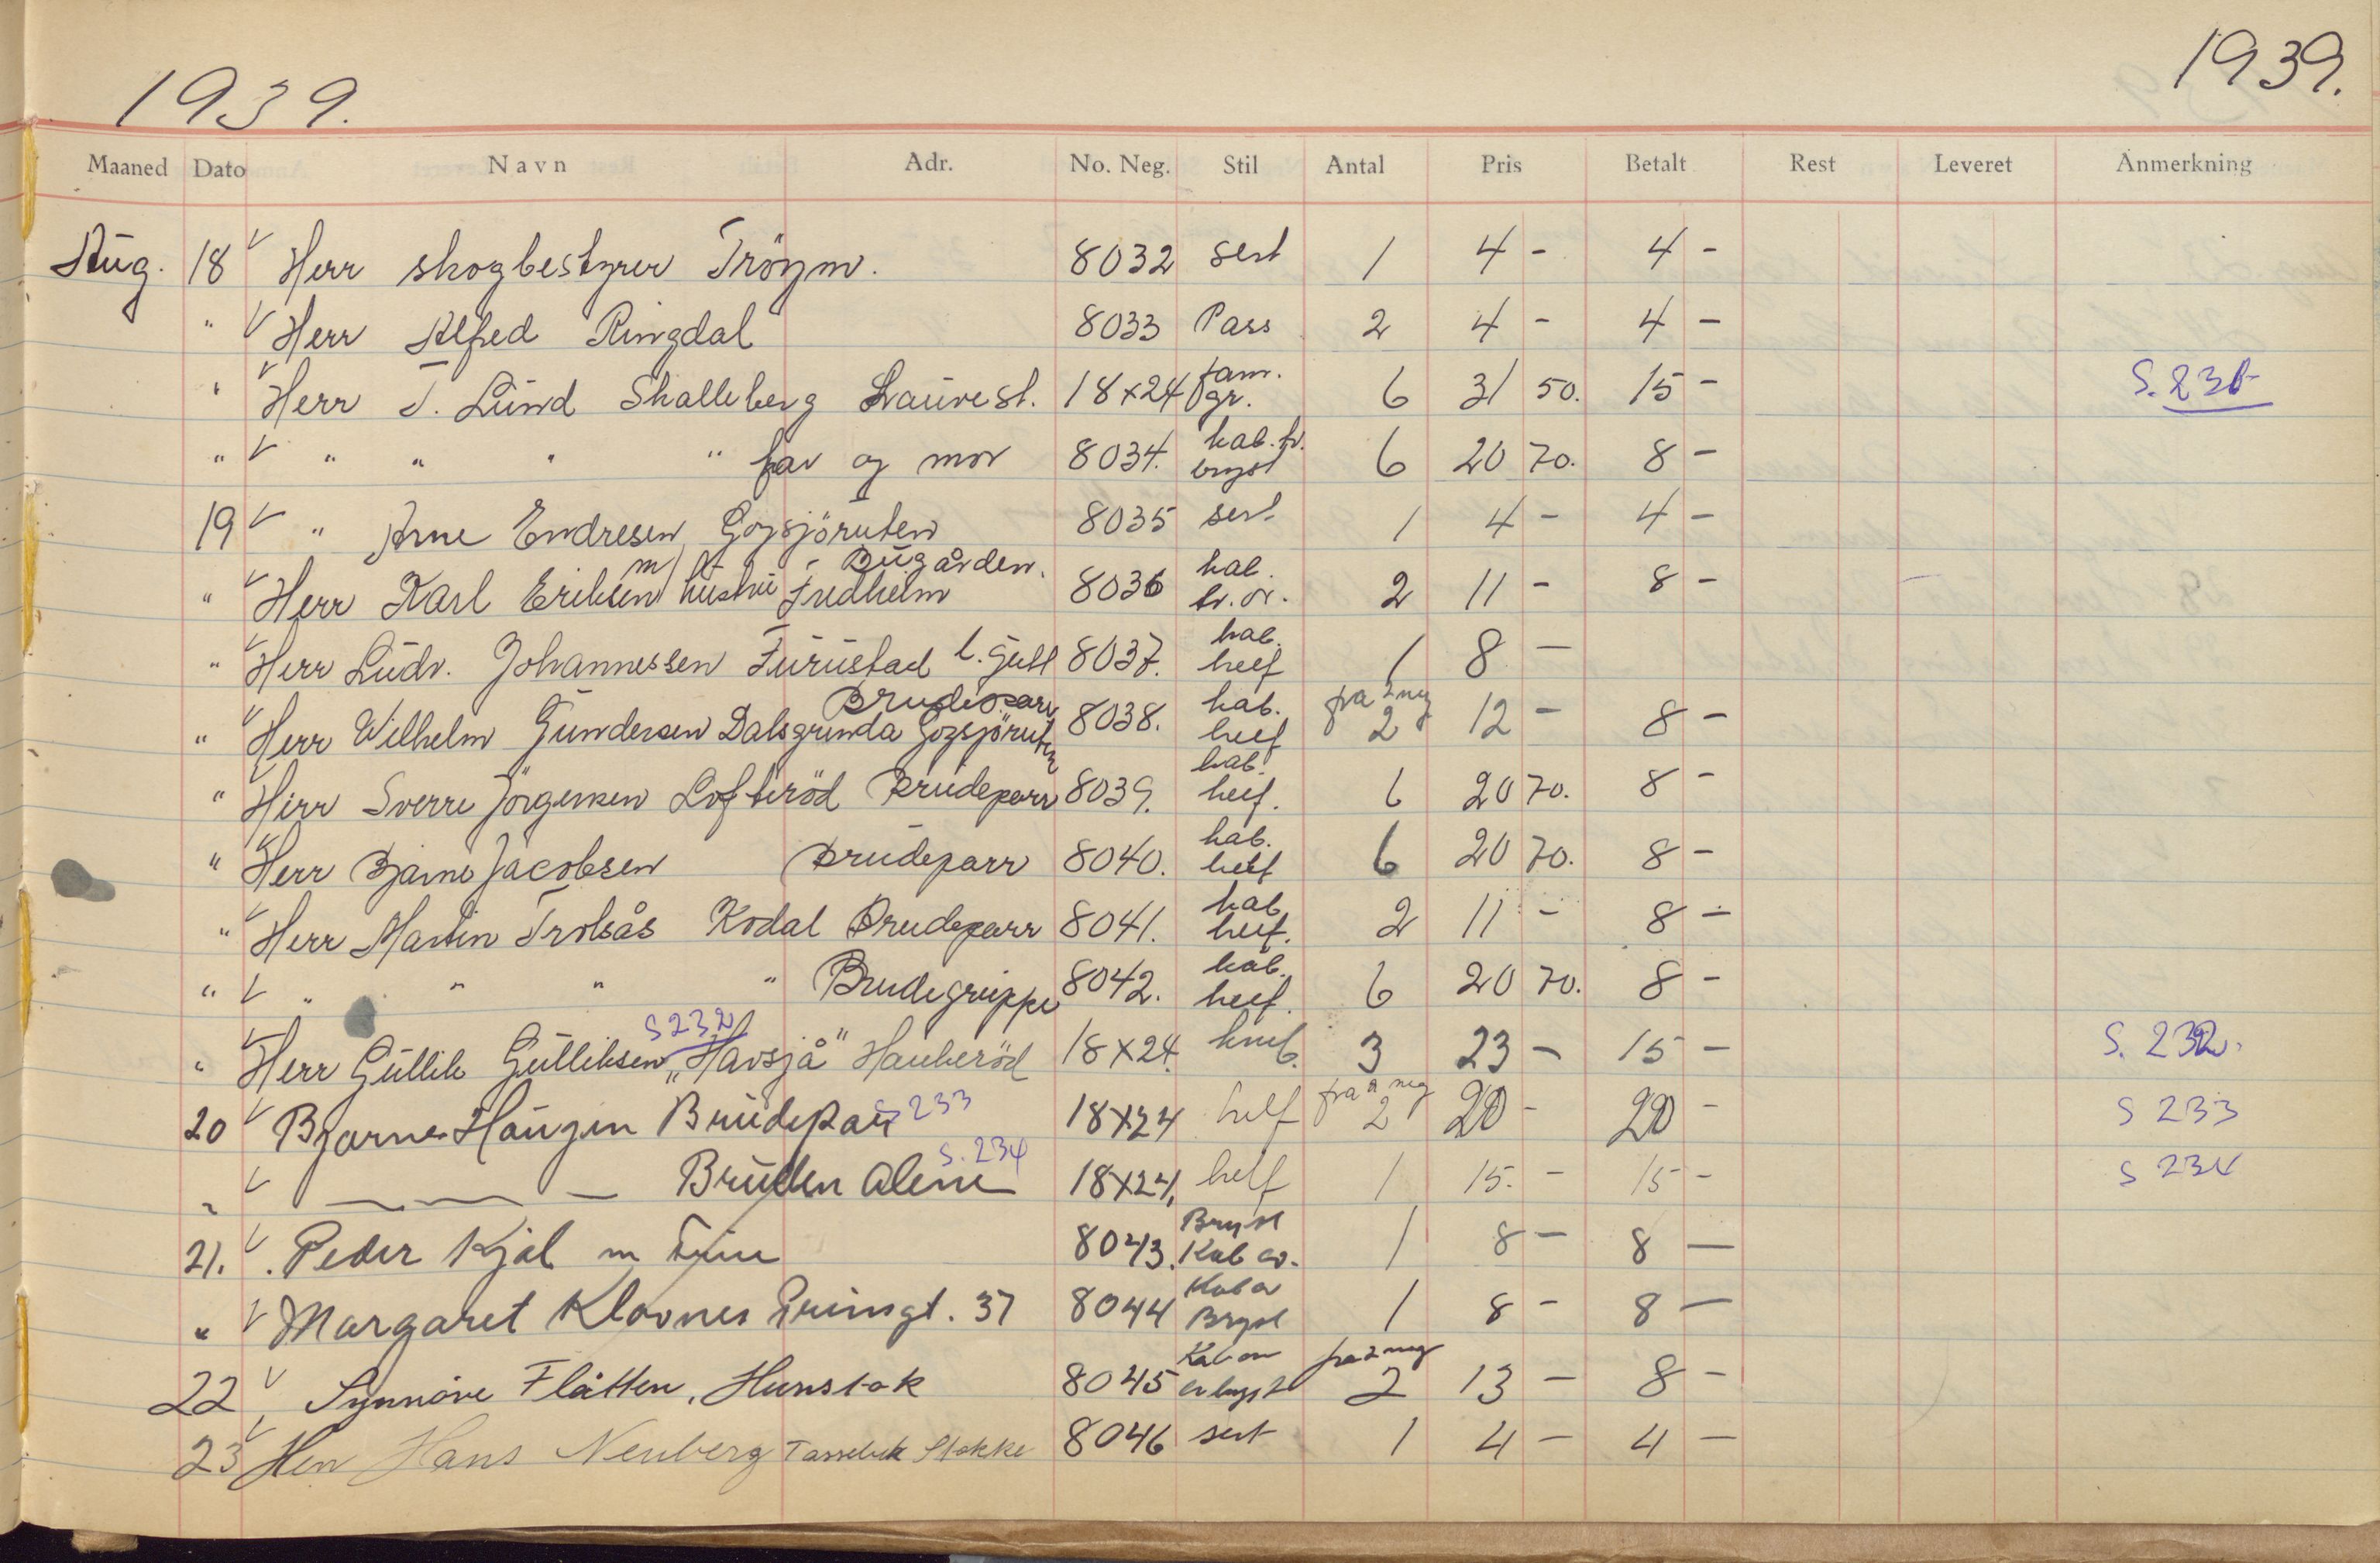 1939.
1939.
Maaned Dato Navn Adr. No. Neg. Stil Antal Pris Betalt Rest Leveret Anmerkning
Aug. 18 Herr skogbestyrer Tröym. 8032 sert 1 4 - 4 -
" Herr Alfred Ringdal 8033 Pass 2 4 - 4 -
" Herr T. Lund Skalleberg Lauvest. 18x24 fam. gr. 6 31 50. 15 - S. 231
" " " " " far og mor 8034. kab. br. bryst 6 20 70. 8 -
19 " Arne Endresen Gogsjöruten 8035 sert. 1 4 - 4 -
" Herr Karl Eriksen m/ hustru Fredheim Bugården. 8036 kab. 2 11 - 8 -
" Herr Ludv. Johannessen Furustad l. gutt 8037. kab. heelf 1 8 -
" Herr Wilhelm Gundersen Dalsgrunda Gogsjöruten Brudepar 8038. kab. heelf fra 2 neg 2 12 - 8 -
" Herr Sverre Jörgensen Lofteröd Brudeparr 8039. kab. heelf. 6 20 70. 8 -
" Herr Bjarne Jacobsen Brudeparr 8040. kab. heelf 6 20 70. 8 -
" Herr Martin Trolsås Kodal Brudeparr 8041. kab. heelf. 2 11 - 8 -
" " " " " Brudegruppe 8042. kab. heelf. 6 20 70. 8 -
" Herr Gullik Gulliksen "Havsjå" S 232 Haukeröd 18x24. kneb. 3 23 - 15 - S. 232.
20 Bjarne Haugen Brudepar S 233 18x24 helf fra 2 neg 2 20 - 20 - S 233
" — — — Bruden alene S. 234 18x24, helf 1 15. - 15 - S 234
21. Peder Kjal m Frue 8043. Bryst Kab av. 1 8 - 8 -
" Margaret Klovnes Prinsgt. 37 8044 Kab ov Bryst 1 8 - 8 -
22 Synnöve Flåtten, Hunstok 8045 Kab ov fra 2 neg 2 13 - 8 -
23 Herr Hans Neuberg Tassebek Stokke 8046 sert 1 4 - 4 -